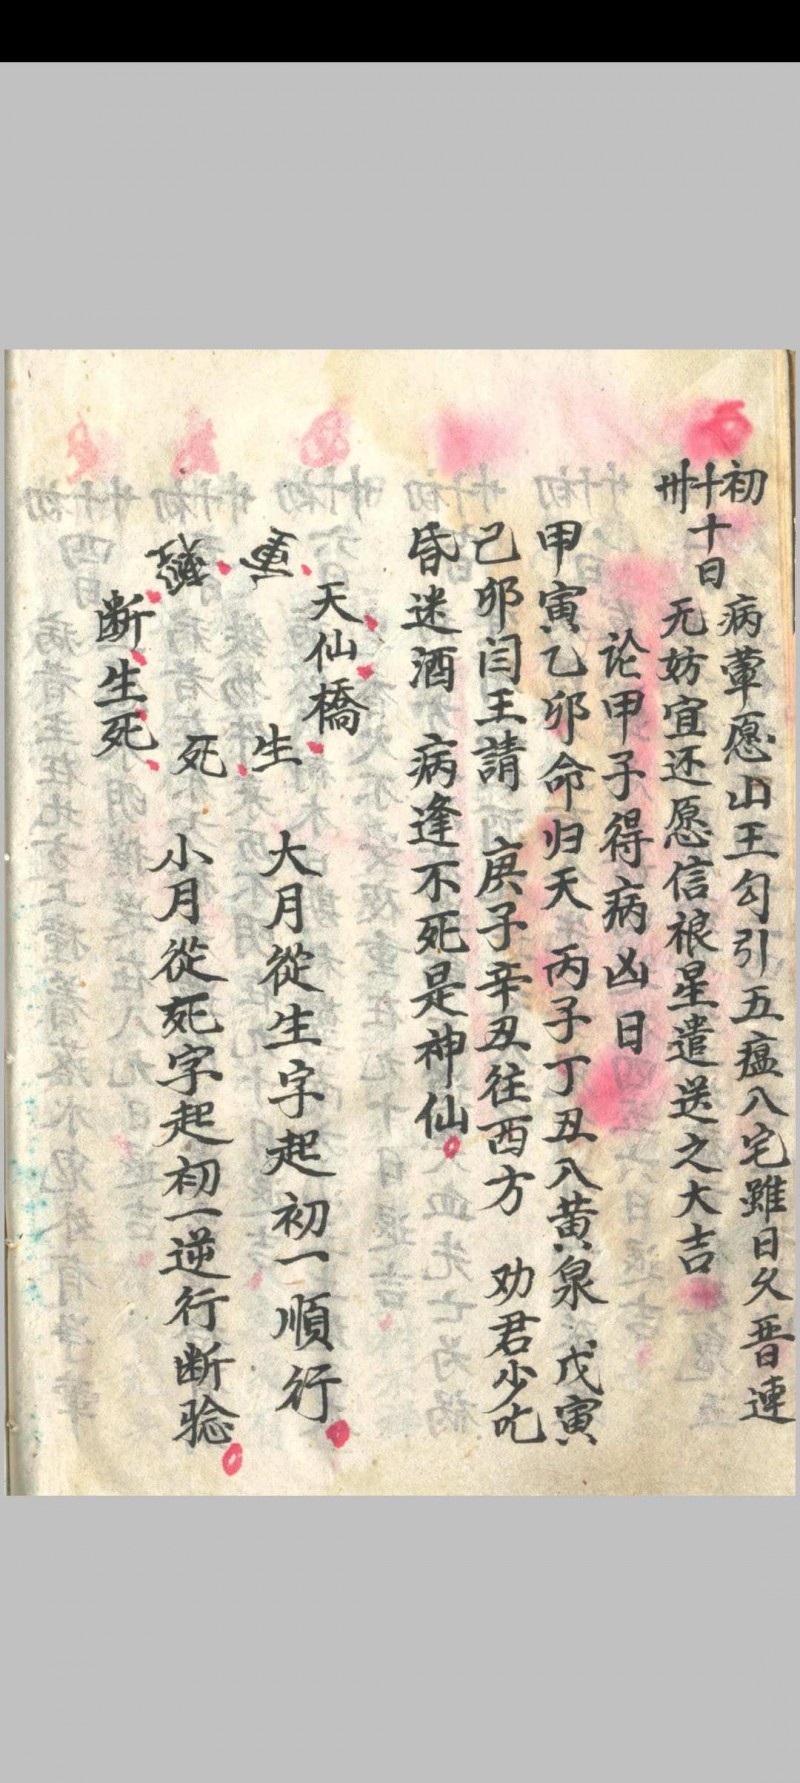 初十卅
十日
病葷愿山王勾引五瘟八宅雖日久晋連
无妨宜还愿信粮星遣送之大吉
论甲子得病凶日
甲寅乙卯命归天 丙子丁丑入黄泉 戊寅
己卯闫王請 庚子辛丑往西方 劝君少吃
昏迷酒 病逢不死是神仙
天仙橋
重
生 大月從生字起初一順行
死 小月從死字起初一逆行断验
断生死